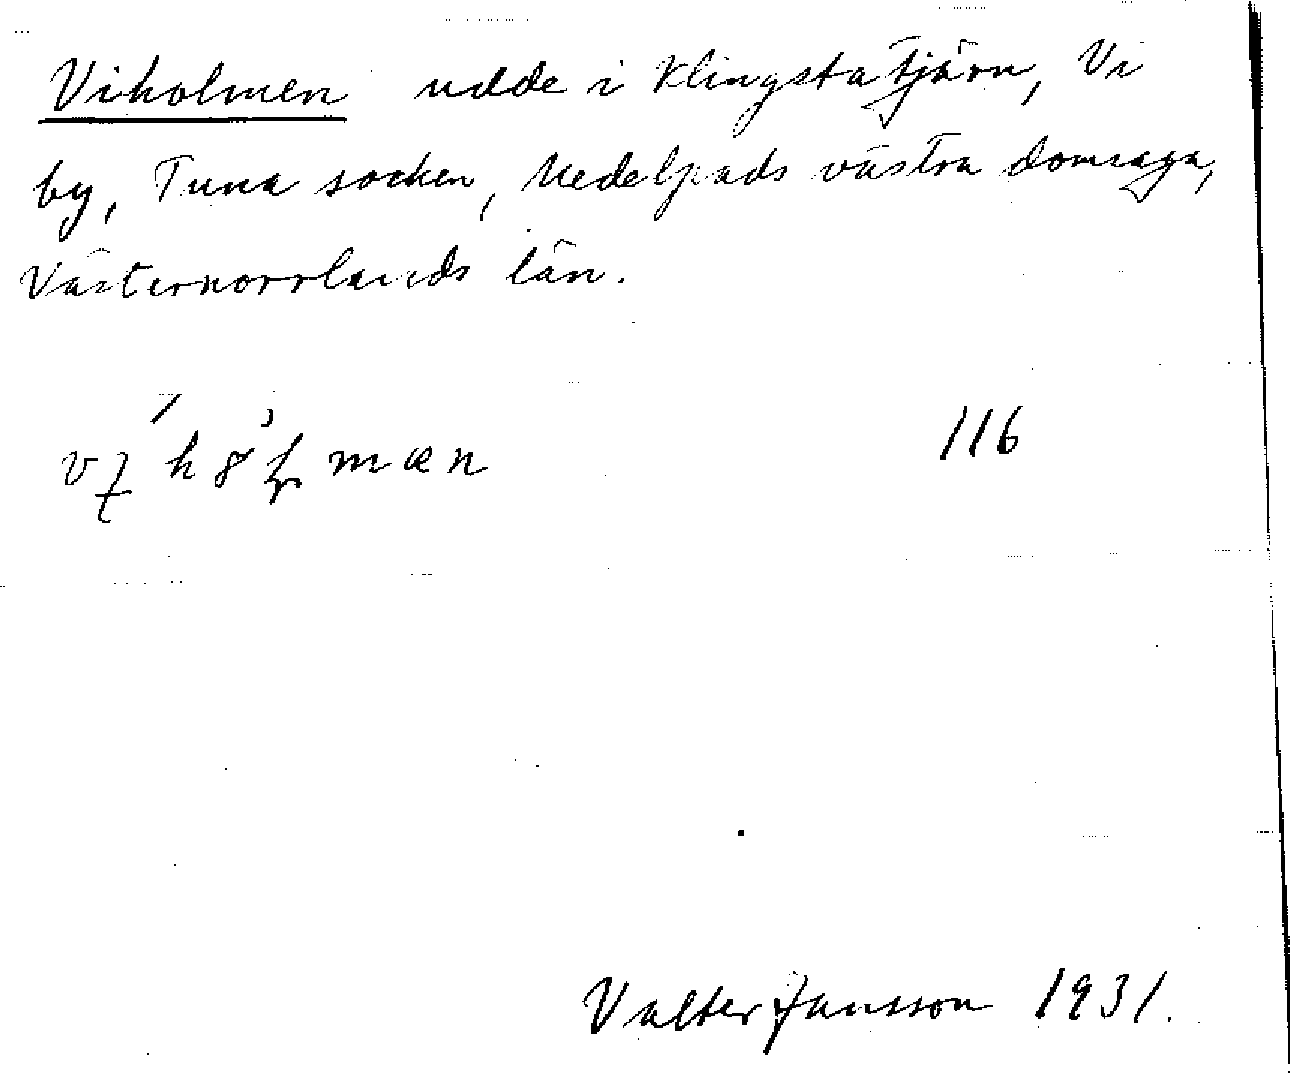 Viholmen udde i Klingstatjärn, Vi
by, Tuna socken, Medelpads västra domsaga,
Västernorrlands län.
116
Valter Jansson 1931.